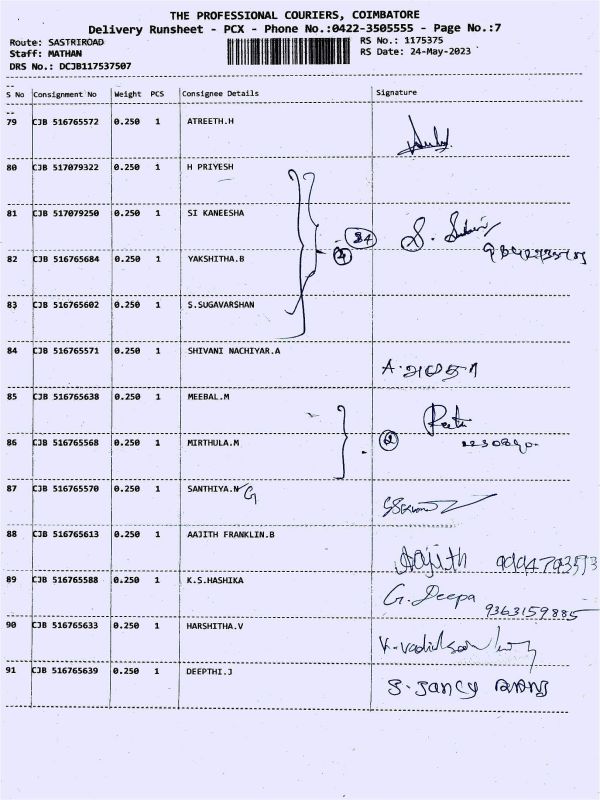 THE PROFESSIONAL COURIERS, COIMBATORE
Delivery Runsheet - PCX - Phone No.:0422-3505555 - Page No.:7
Route: SASTRIROAD RS No.: 1175375
Staff: MATHAN RS Date: 24-May-2023
DRS No.: DCJB117537507
S No Consignment No Weight PCS Consignee Details Signature
79 CJB 516765572 0.250 1 ATREETH.H
80 CJB 517079322 0.250 1 H PRIYESH
81 CJB 517079250 0.250 1 SI KANEESHA
84
82 CJB 516765684 0.250 1 YAKSHITHA.B
83 CJB 516765602 0.250 1 S.SUGAVARSHAN
84 CJB 516765571 0.250 1 SHIVANI NACHIYAR.A
85 CJB 516765638 0.250 1 MEEBAL.M
86 CJB 516765568 0.250 1 MIRTHULA.M
87 CJB 516765570 0.250 1 SANTHIYA.N G
88 CJB 516765613 0.250 1 AAJITH FRANKLIN.B
Aajith
89 CJB 516765588 0.250 1 K.S.HASHIKA
G. Deepa
9363159885
90 CJB 516765633 0.250 1 HARSHITHA.V
91 CJB 516765639 0.250 1 DEEPTHI.J
S. Jancy